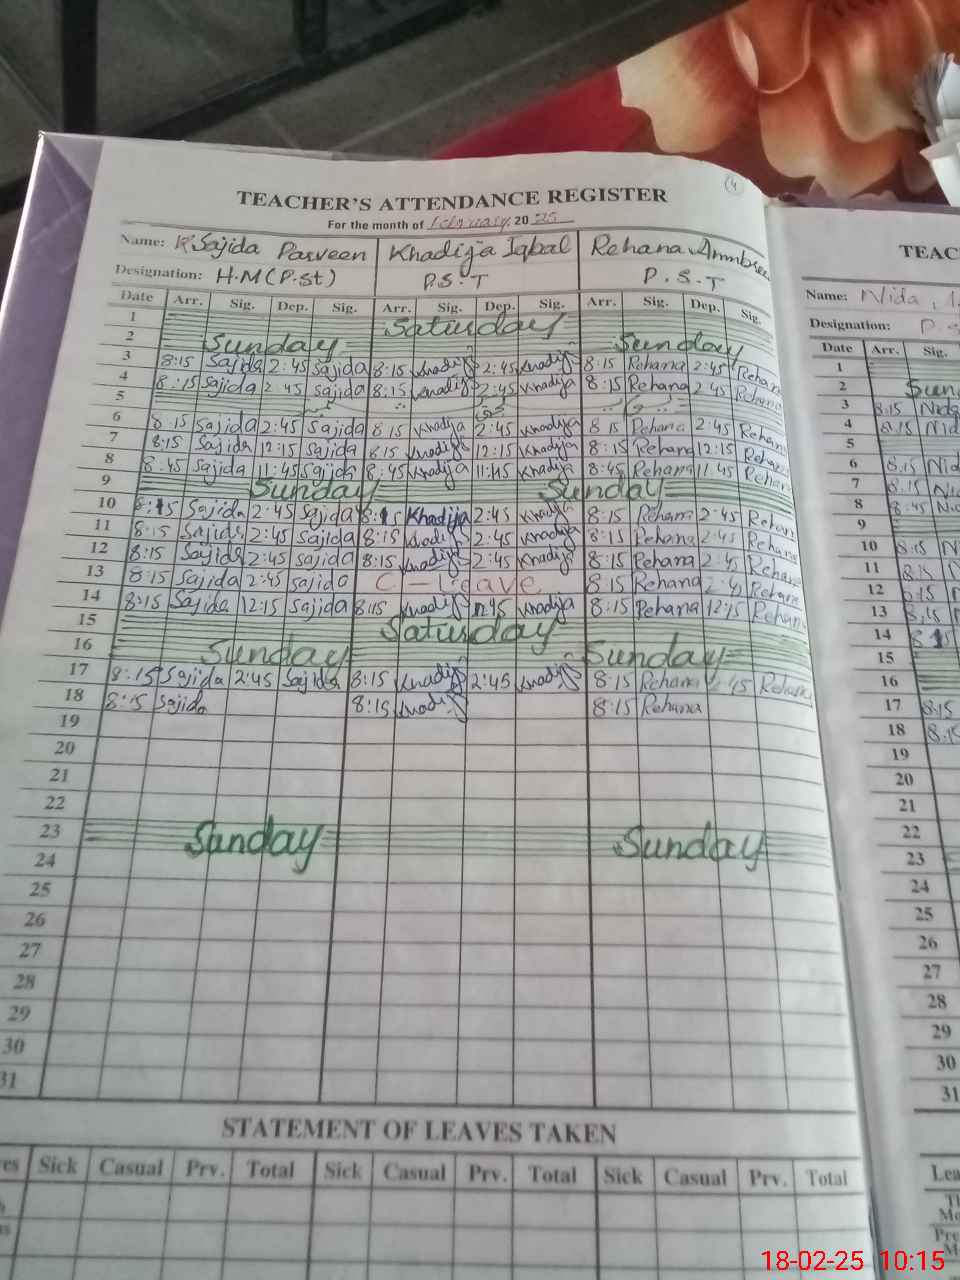 (4)
TEACHER'S ATTENDANCE REGISTER
For the month of February 2025
Name: Sajida Parveen Khadija Iqbal Rehana
Designation: H.M (P.St) P.S.T P.S.T
Date Arr. Sig. Dep. Sig. Arr. Sig. Dep. Sig. Arr. Sig. Dep. Sig.
1 Saturday
2 Sunday Sunday
3 8:15 Sajida 2:45 Sajida 8:15 Khadija 2:45 Khadija 8:15 Rehana 2:45 Rehana
4 8:15 Sajida 2:45 Sajida 8:15 Khadija 2:45 Khadija 8:15 Rehana 2:45 Rehana
5
6 8:15 Sajida 2:45 Sajida 8:15 Khadija 2:45 Khadija 8:15 Rehana 2:45 Rehana
7 8:15 Sajida 12:15 Sajida 8:15 Khadija 12:15 Khadija 8:15 Rehana 12:15 Rehana
8 8:45 Sajida 11:45 Sajida 8:45 Khadija 11:45 Khadija 8:45 Rehana 11:45 Rehana
9 Sunday Sunday
10 8:15 Sajida 2:45 Sajida 8:15 Khadija 2:45 Khadija 8:15 Rehana 2:45 Rehana
11 8:15 Sajida 2:45 Sajida 8:15 Khadija 2:45 Khadija 8:15 Rehana 2:45 Rehana
12 8:15 Sajida 2:45 Sajida 8:15 Khadija 2:45 Khadija 8:15 Rehana 2:45 Rehana
13 8:15 Sajida 2:45 Sajida C-Leave 8:15 Rehana 2:45 Rehana
14 8:15 Sajida 12:15 Sajida 8:15 Khadija 12:15 Khadija 8:15 Rehana 12:15 Rehana
15 Saturday
16 Sunday Sunday
17 8:15 Sajida 2:45 Sajida 8:15 Khadija 2:45 Khadija 8:15 Rehana 2:45 Rehana
18 8:15 Sajida 8:15 Khadija 8:15 Rehana
19
20
21
22
23 Sunday Sunday
24
25
26
27
28
29
30
31
STATEMENT OF LEAVES TAKEN
Sick Casual Prv. Total Sick Casual Prv. Total Sick Casual Prv. Total
TEAC
Name: Nida
Designation: P.S
Date Arr. Sig.
1
2 Sun
3 8:15 Nida
4 8:15 Nid
5
6 8:15 Nid
7 8:15 Nid
8 8:45 Ni
9
10 8:15 N
11 8:15
12 8:15
13 8:15
14 8:15
15
16
17 8:15
18 8:15
19
20
21
22
23
24
25
26
27
28
29
30
31
Lea
18-02-25 10:15